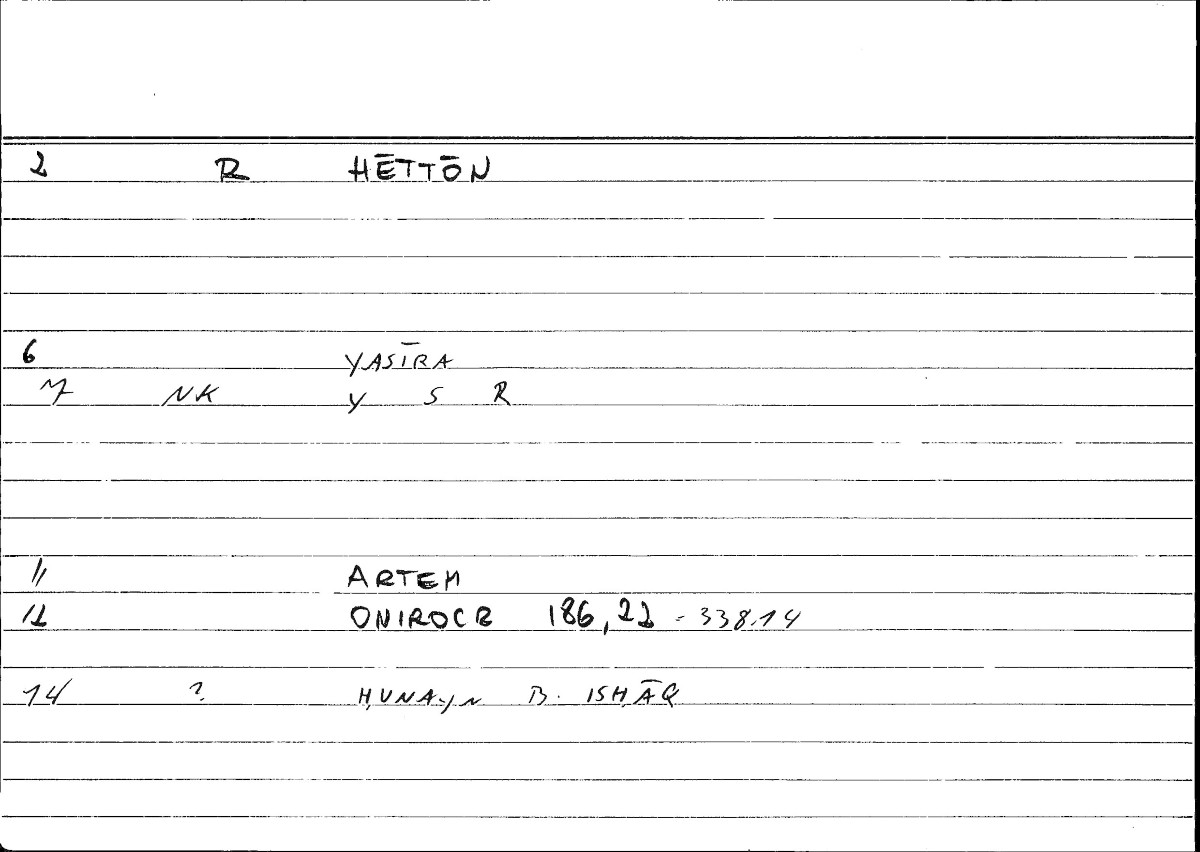 2 R HĒTTŌN
6 YASĪRA
7 NK Y S R
11 ARTEM
12 ONIROCR 186,22 - 338.14
14 ? ḤUNAYN B. ISḤĀQ